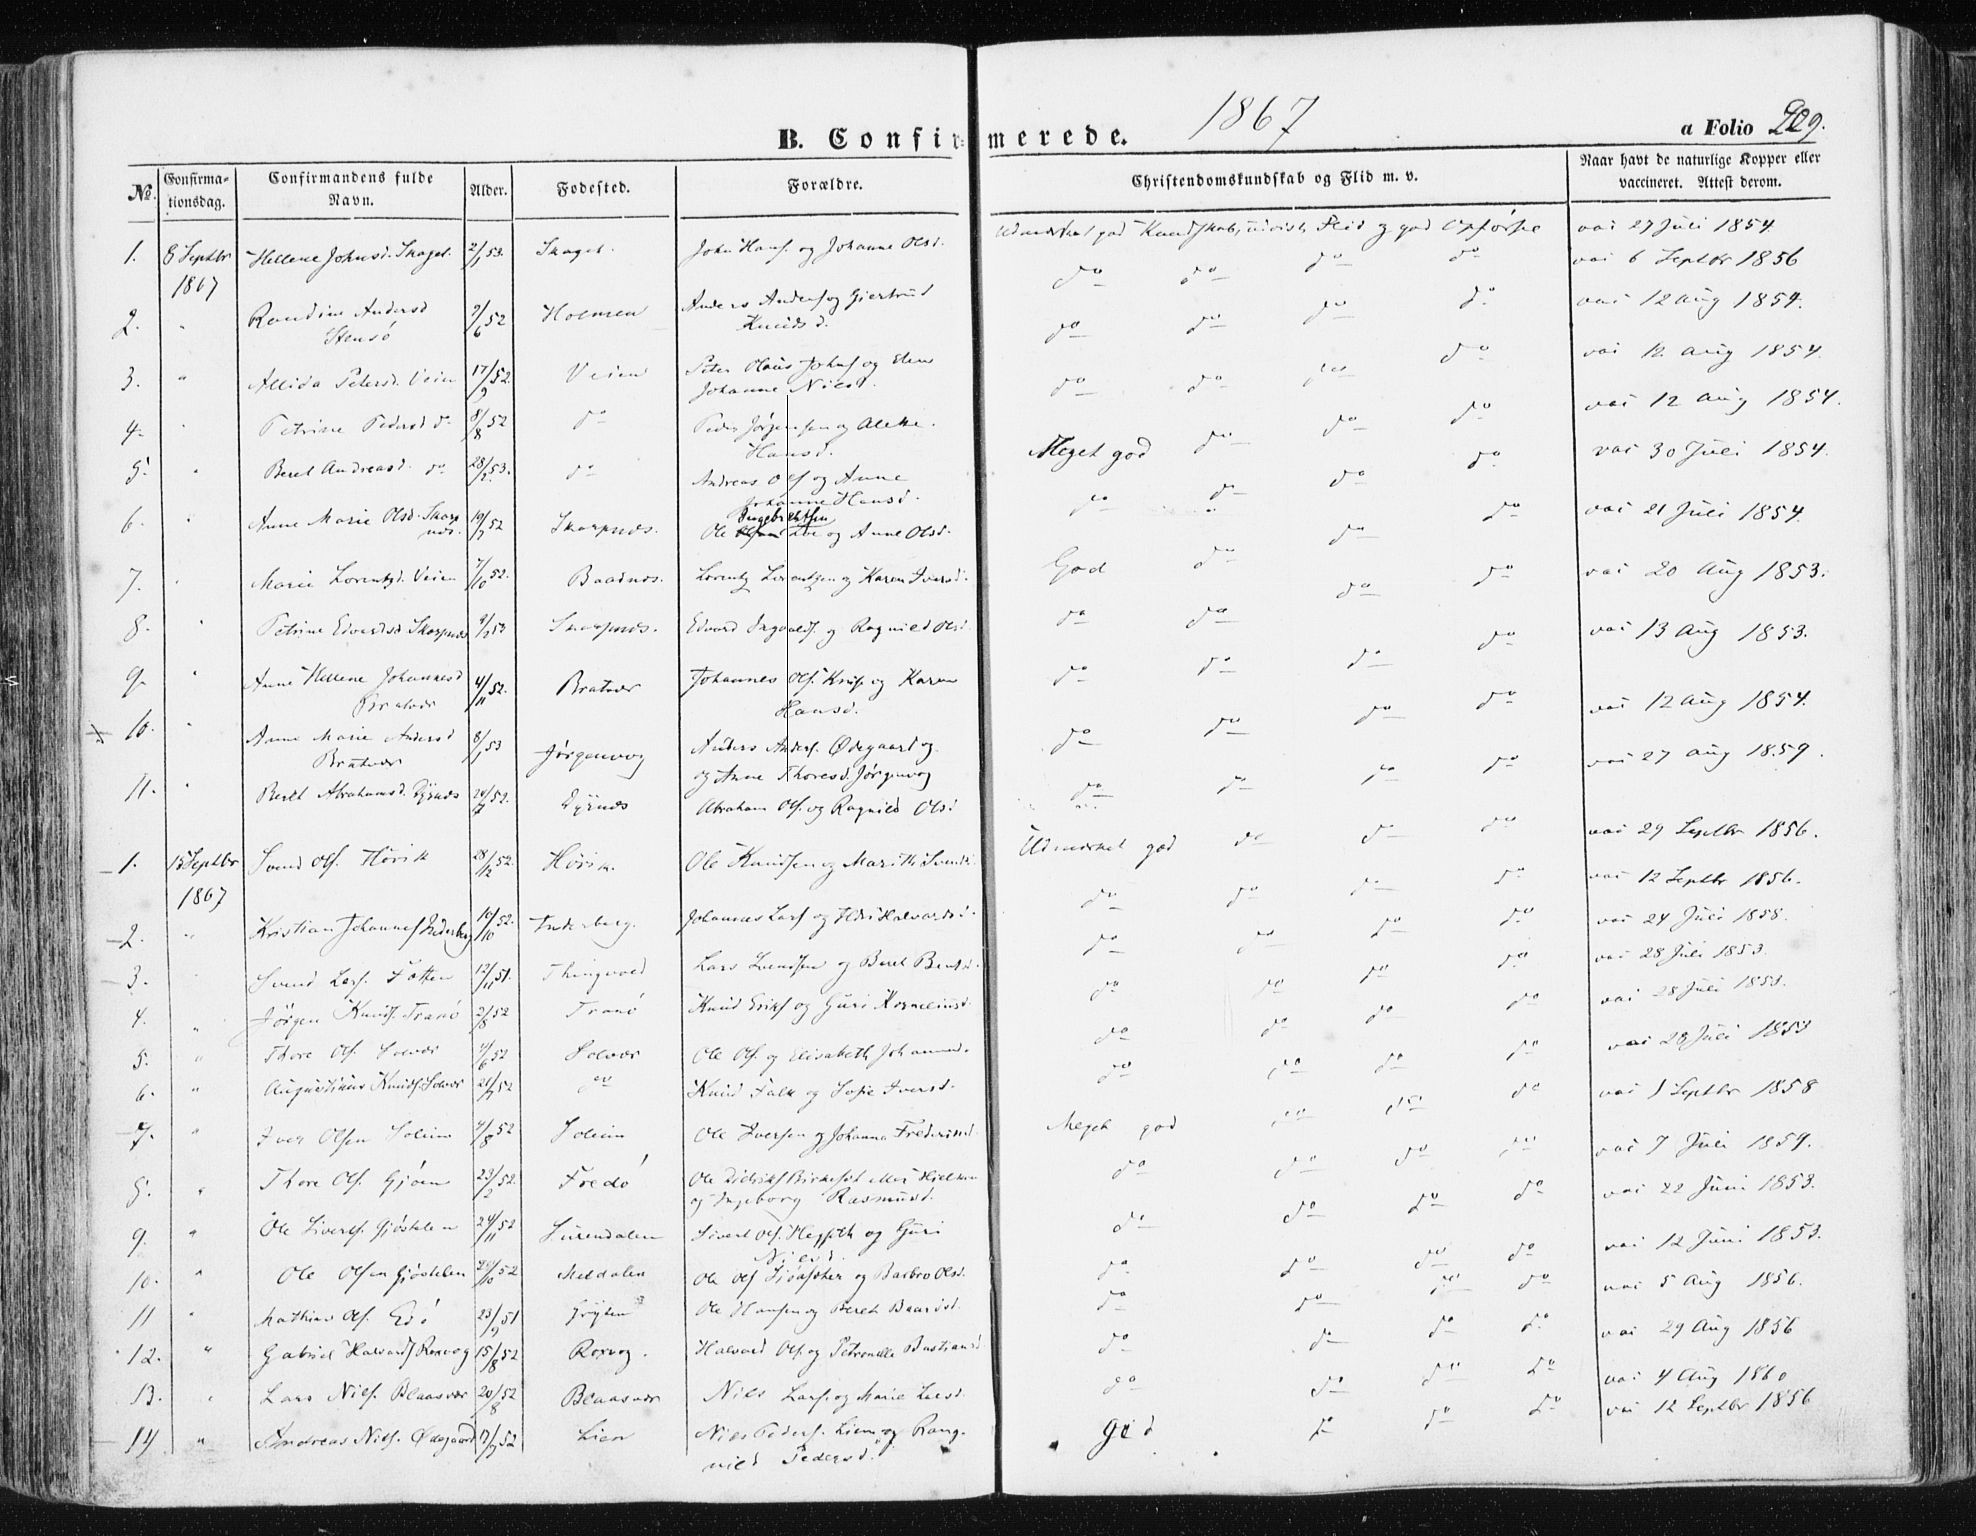 1867
B. Confirmerede.
a Folio 209.
No. Confirmationsdag. Confirmandens fulde Navn. Alder. Fodested. Forældre. Christendomskundskab og Flid m. v. Naar havt de naturlige Kopper eller vaccineret. Attest derom.
1. 8 Septbr 1867 Hellene Johnsd. Skaget. 2/1 53. Skaget. John Hans. og Johanne Olsd. Udmærket god Kundskab, Flid og god Opførsel vac 27 Juli 1854
2. " Randine Andersd Stensö 9/6 52 Holmen Anders Anders og Giertrud Knudsd. do do do do vac 6 Septbr 1856
3. " Allida Petersd. Veien 17/9 52. Veien Peter Olaus Johns og Elen Johanne Nilsd. do do do do vac 12 Aug 1854.
4. " Petrine Pedersd do 8/8 52 do Peder Jørgensen og Alethe Hansd. do do do do vac 12 Aug 1854.
5. " Beret Andreasd. do 28/2 53. do Andreas Ols og Anne Johanne Hansd. Meget god do do do vac 12 Aug 1854.
6. " Anne Marie Olsd. Skarpnæs. 19/7 52 Skarpnæs. Ole Ingebrethsen og Anne Olsd. do do do do vac 30 Juli 1854.
7. " Marie Lorentsd. Veien 7/10 52. Baadnæs. Lorents Lorentsen og Karen Iversd. God do do do vac 21 Juli 1854.
8. " Petrine Edvardsd Skarpnæs 53 Skarpnæs. Edvard Ingvalds. og Ragnild Olsd. do do do do vac 20 Aug 1853.
9. " Anne Hellene Johannesd Bratvær 4/11 52. Bratvær Johannes Ols. Knis og Karen Hansd. do do do do vac 13 Aug 1853.
10. " Anne Marie Andersd Bratvær 8/1 53 Jørgenvog Anders Anders. Ødegaard og og Anne Thoresd. Jørgenvog do do do do vac 12 Aug 1854.
11. " Bereth Abrahamsd. Dyrnæs 24/7 52. Dyrnæs Abraham Ols. og Ragnild Olsd do do do do vac 27 Aug 1859.
1. 15 Septbr 1867 Svend Ols. Hövik 28/12 52. Hövik. Ole Knudsen og Marith Svends. Udmærket god do do do vac 29 Septbr 1856.
2. " Kristian Johannes Inderberg 10/10 52. Inderberg. Johannes Lars og Halvardsd. do do do do vac 12 Septbr 1856.
3. Svend Lars. Fætten 12/11 51. Thingvold Lars Svendsen og Beret Berthsd. do do do do vac 24 Juli 1858.
4. " Jörgen Knuds. Tranö 2/8 52 Tranö Knud Eriks og Guri Korneliusd. do do do do vac 28 Juli 1853.
5. " Thore Ols. Solvær 4/6 52 Solvær Ole Ols. og Elisabeth Johannesd. do do do do vac 28 Juli 1853.
6. " Augustinus Knuds. Solvær 21/7 52 do Knud Falk og Sofie Iversd. do do do do vac 28 Juli 1853
7. " Iver Olsen Soleim 4/8 52 Soleim Ole Iversen og Johanna Frederiksd. Meget god do do do vac 1 Septbr 1858
8. " Thore Ols. Gjöen 23/2 52. Fredö Ole Didriks og Ingeborg Rasmusd. do do do do vac 7 Juli 1854.
9. " Ole Siverts. Gjöstelen 24/11 52 Surendalen Sivert Ols. og Guri Nilsd. do do do do vac 22 Juni 1853.
10. " Ole Olsen Gjöstelen 20/10 52 Meldalen Ole Ols og Barbro Olsd. do do do do vac 12 Juni 1853.
11 " Mathias Ols. Edö 23/9 51 Gryten Ole Hansen og Bereth Baardsd. do do do do vac 5 Aug 1856.
12. " Gabriel Halvards Roxvog 15/8 52 Roxvog. Halvard Ols. og Petronelle Bastiansd do do do do vac 29 Aug 1856
13. " Lars Nils. Blaasvær 20/8 52 Blaasvær Niels Lars. og Marie Larsd. do do do do vac 4 Aug 1860
14 " Andreas Nils. Ødegaard 17/7 52 Lien Niels Peders. Lien og Rangnild Pedersd. God do do do vac 12 Septbr 1856